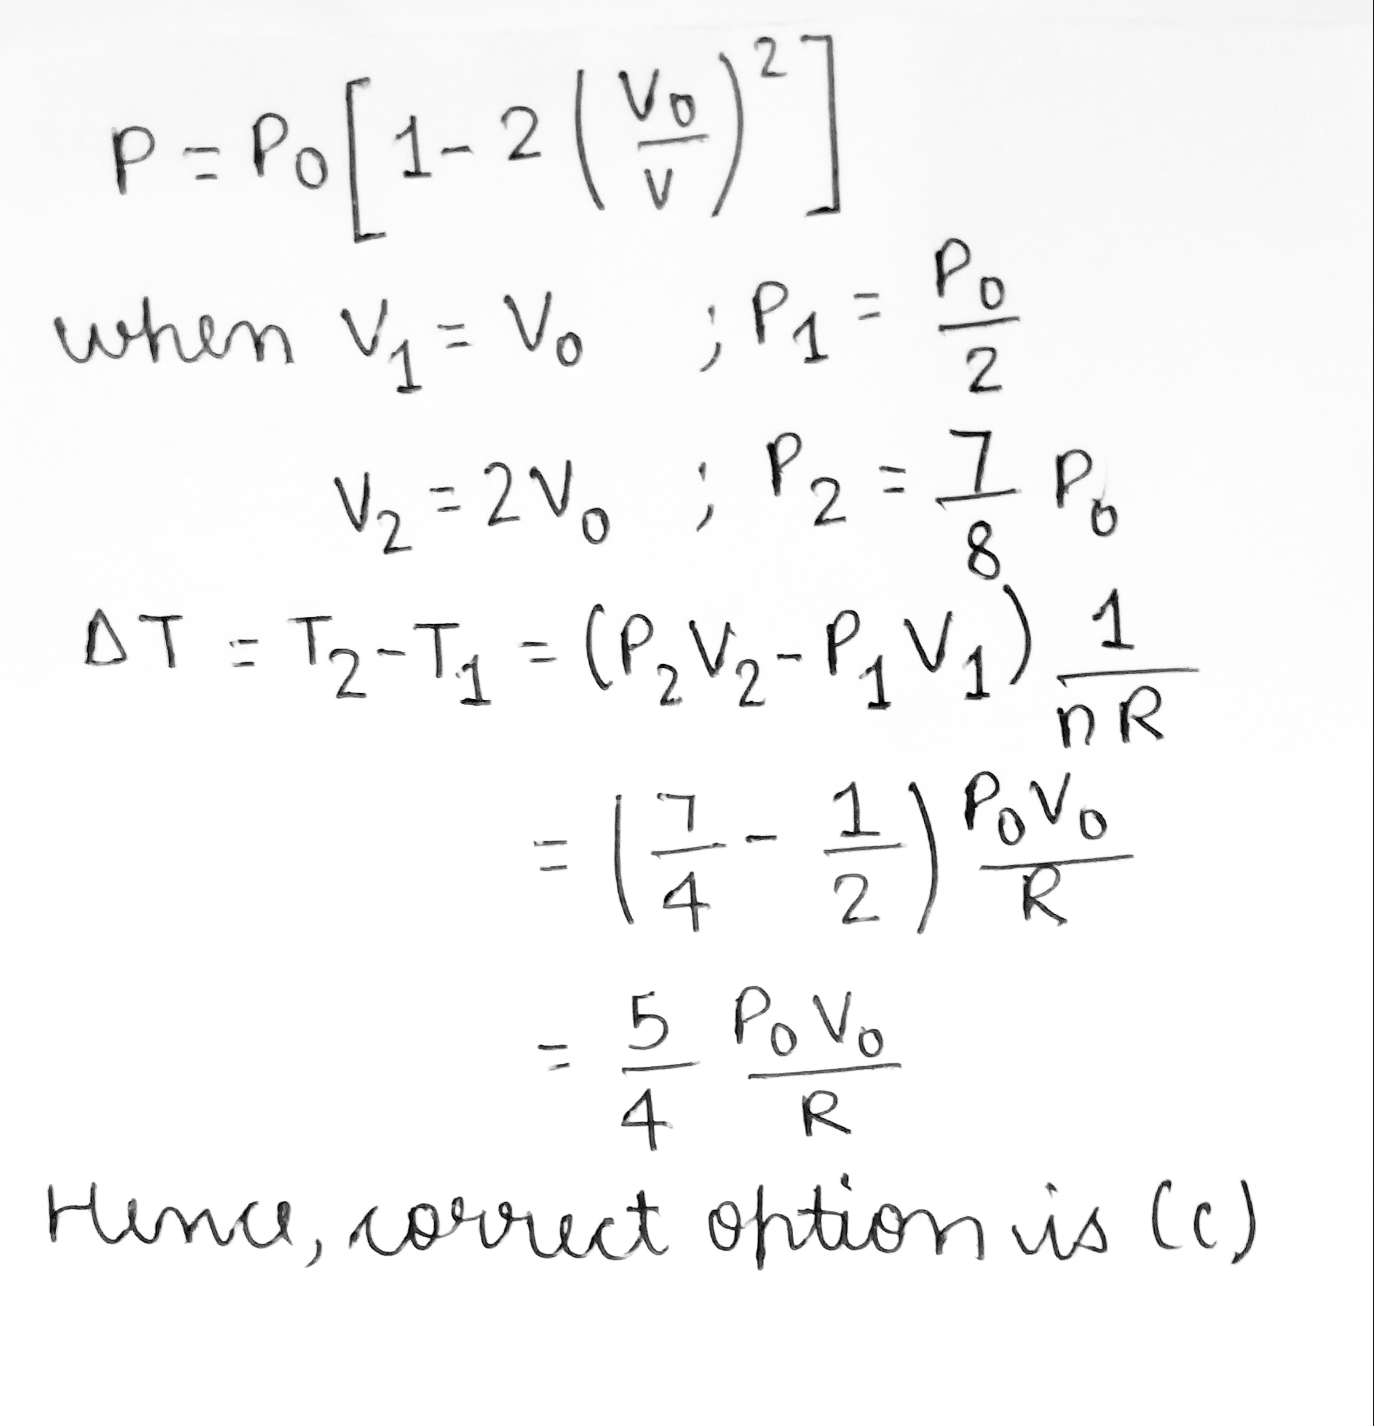 P = P₀[1-2(V₀/V)²]
when V₁ = V₀ ; P₁ = P₀/2
V₂ = 2V₀ ; P₂ = 7/8 P₀
ΔT = T₂-T₁ = (P₂V₂-P₁V₁) 1/nR
= (7/4 - 1/2) P₀V₀/R
= 5/4 P₀V₀/R
Hence, correct option is (c)